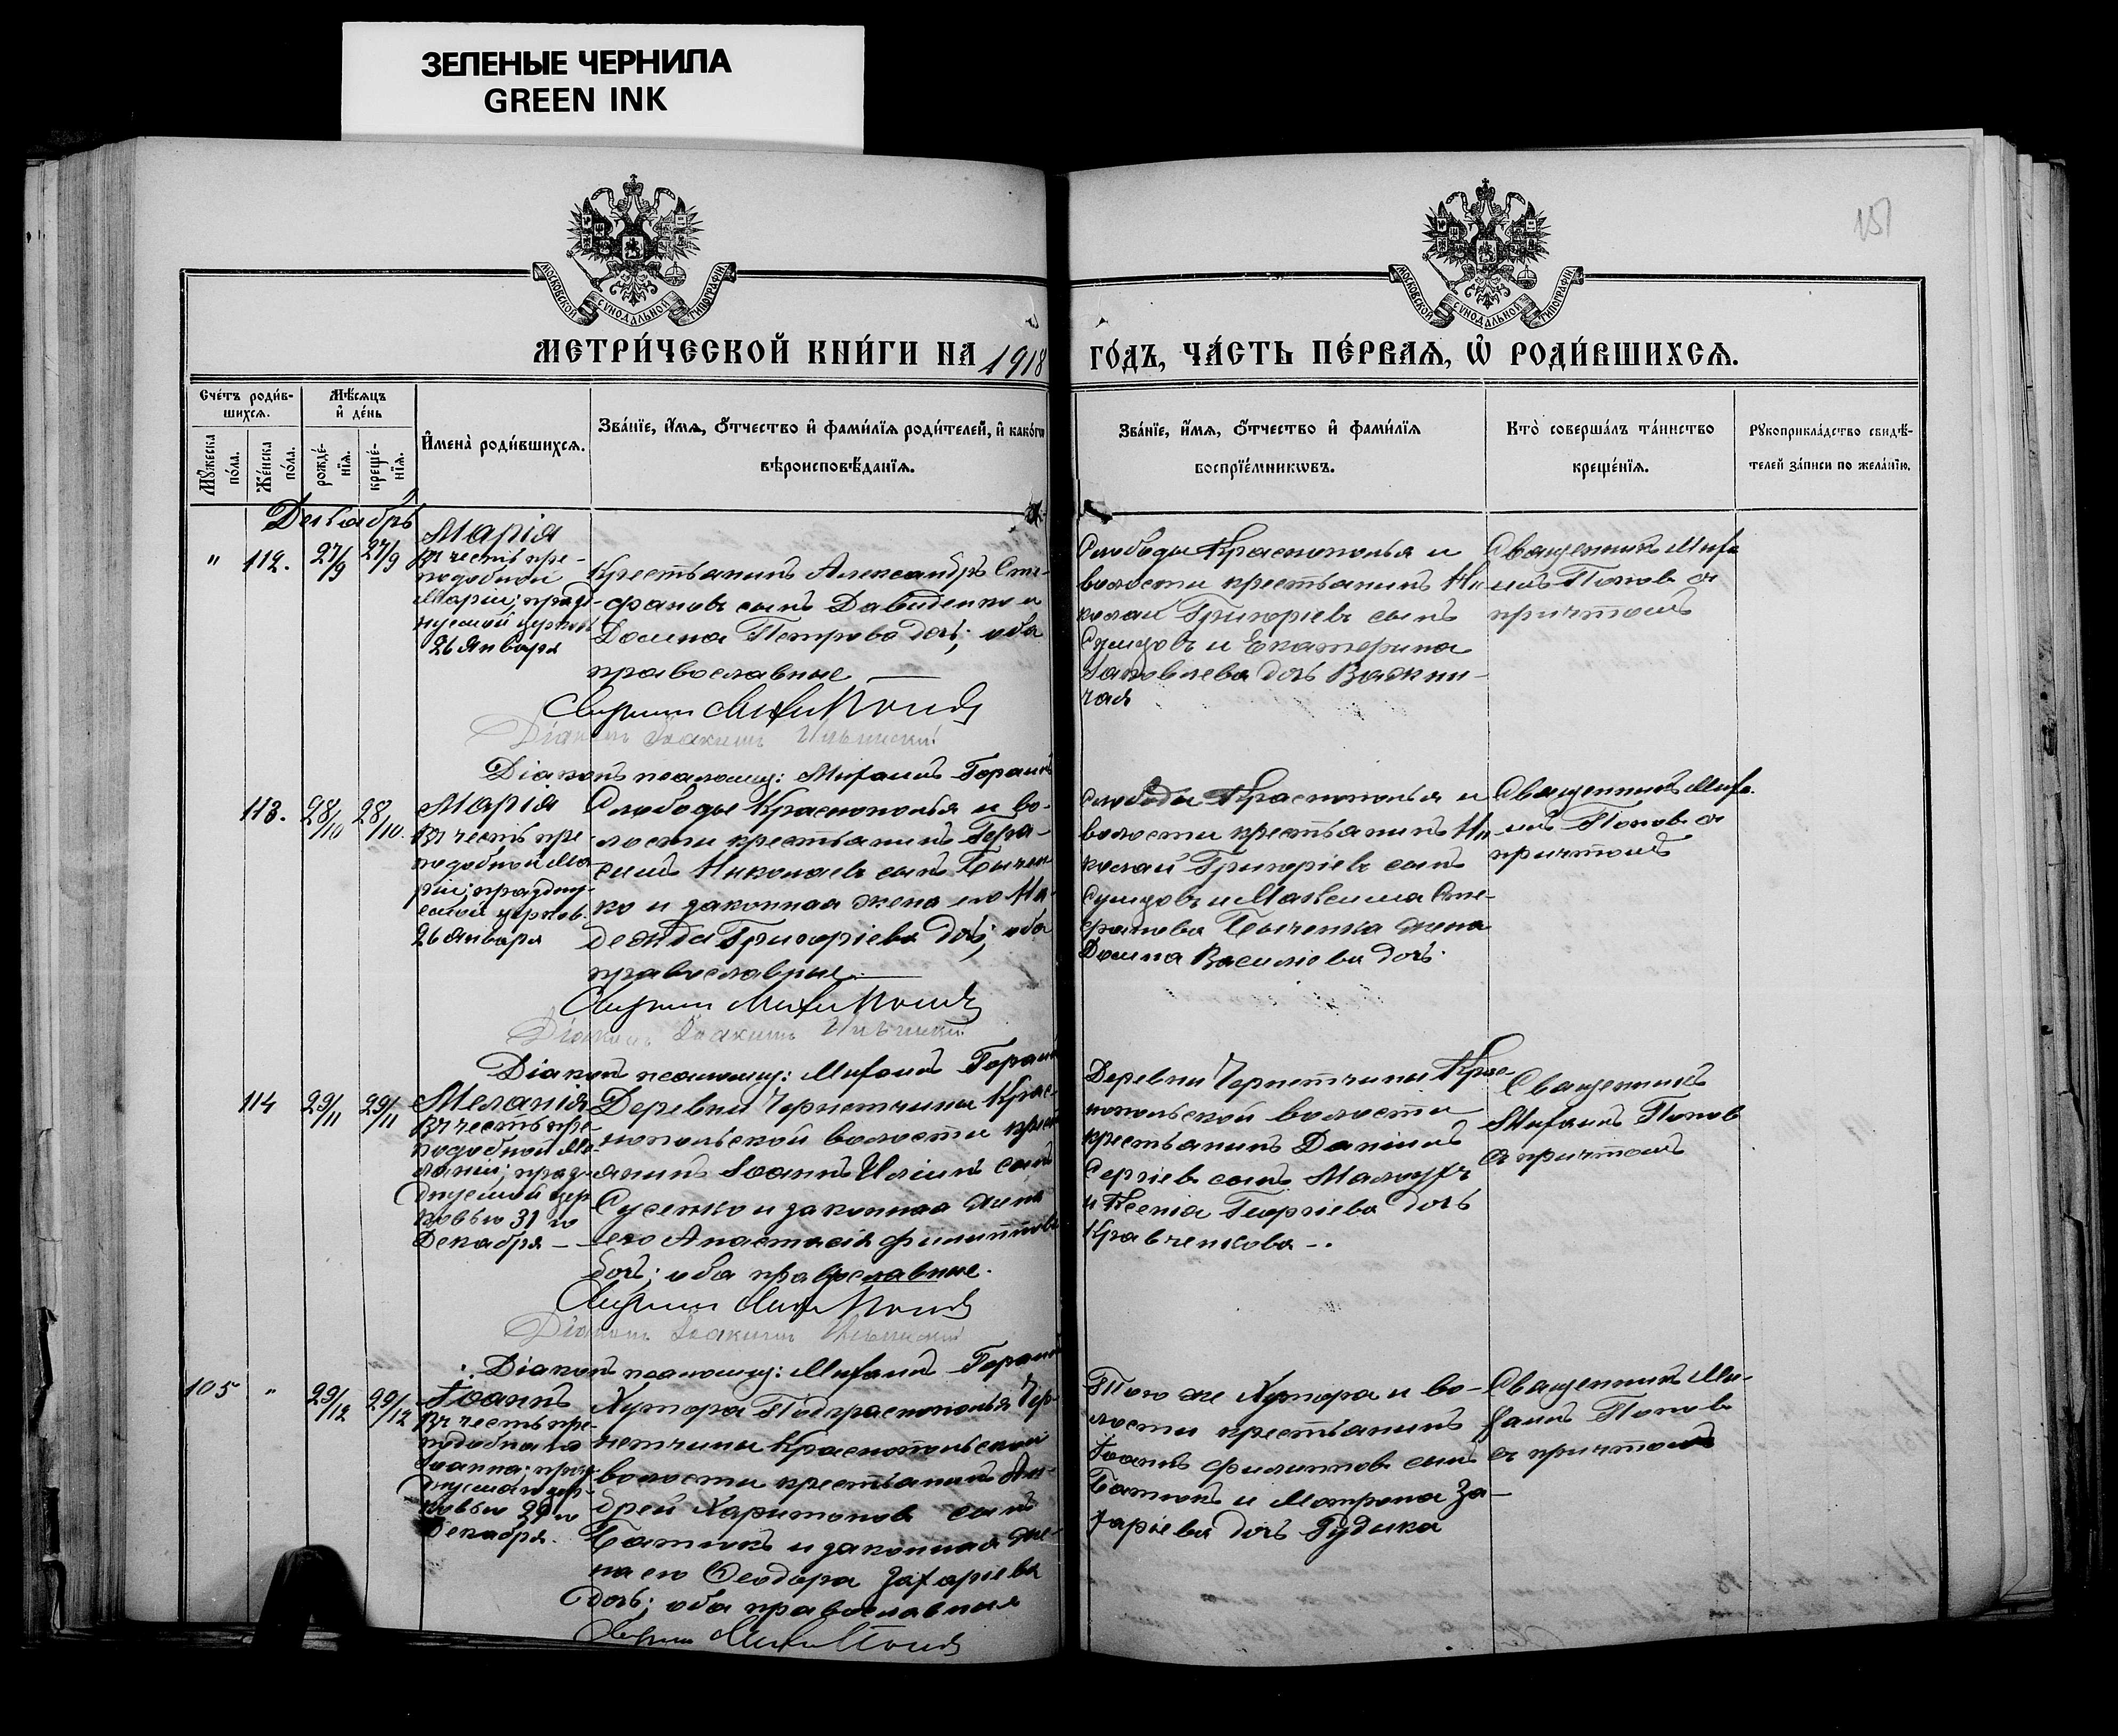 ЗЕЛЕНЫЕ ЧЕРНИЛА
GREEN INK
151
МОСКОВСКОЙ СУНОДАЛЬНОЙ ТИПОГРАФІИ
МОСКОВСКОЙ СУНОДАЛЬНОЙ ТИПОГРАФІИ
МЕТРИ́ЧЕСКОЙ КНИ́ГИ НА 1918
ГО́ДЪ, ЧА́СТЬ ПЕ́РВАѦ, Ѡ҆ РОДИ́ВШИХСѦ.
Сче́тъ роди́в-
шихсѧ.
Мѣ́сѧцъ
и҆ де́нь
Мꙋ́жеска
по́ла.
Же́нска
по́ла.
рожде́-
нїѧ.
креще́-
нїѧ.
И҆мена̀ роди́вшихсѧ.
Зва́нїе, и҆́мѧ, ѻ҆́тчество и҆ фами́лїѧ роди́телей, и҆ како́гѡ
вѣроисповѣ́данїѧ.
Зва́нїе, и҆́мѧ, ѻ҆́тчество и҆ фами́лїѧ
воспрїе́мникѡвъ.
Кто̀ соверша́лъ та́инство
креще́нїѧ.
Рꙋкоприкла́дство свидѣ́-
телей за́писи по жела́нїю.
Декабрь
" 112. 27/9 27/9
Марія
въ честь пре-
подобной
Маріи; празд-
нуемой церков
26 Января
Крестьянинъ Александръ Сте-
фановъ сынъ Давиденко и
Домна Петрова дочь; оба
православные
Слободы Краснополья и
волости крестьянинъ Ни
колай Григоріевъ сынъ
Сумцовъ и Екатерина
Іаковлева дочь
чая
Священникъ Митро
Поповъ съ
причтомъ
Діаконъ Іоакимъ Ильинскій
Діаконъ псаломщ:
113. 28/10 28/10.
Марія
Въ честь пре
подобной Ма
ріи; праздну-
емой церков.
26 Января
Слободы Краснополья и во-
лости крестьянинъ Гера-
симъ Николаевъ сынъ Бычен
ко и законная жена его На-
дежда Григоріева дочь; оба
православные.
Слободы Краснополья и
волости крестьянинъ Ни
колай Григоріевъ сынъ
Сумцовъ и Максима Сте-
фанова Быченка жена
Домна Василіева дочь.
Священникъ
Поповъ съ
причтомъ
Діаконъ Іоакимъ Ильинскій
Діаконъ псаломщ:
114 29/11 29/11
Меланія
Въ честь пре-
подобной Ме-
ланіи; празд-
днуемой цер
ковью 31 го
Декабря —
Деревни Чернетчины Крас-
нопольской волости крест
янинъ Іоаннъ Иліинъ сынъ
Сусенко и законная жена
его Анастасія Филиппова
дочь; оба православные.
Деревни Чернетчины Крас-
нопольской волости
крестьянинъ Даніилъ
Сергіевъ сынъ
и Ксенія Георгіева дочь
Кравченкова —.
Священникъ
Поповъ
съ причтомъ
Діаконъ Іоакимъ Ильинскій
Діаконъ псаломщ:
105 " 29/12 29/12
Іоаннъ
Въ честь пре-
подобнаго
Іоанна; праз-
днуемаго цер-
ковью 29 го
Декабря.
Хутора Подкраснополья Чер-
нетчины Краснопольской
волости крестьянинъ Ан-
дрей Харитоновъ сынъ
Батюкъ и законная же-
на его Ѳеодора Захаріева
дочь; оба православные
Того же Хутора и во-
лости крестьянинъ
Іоаннъ Филипповъ сынъ
Батюкъ и Матрона За-
харіева дочь Гудыка
Священникъ
Поповъ
съ причтомъ